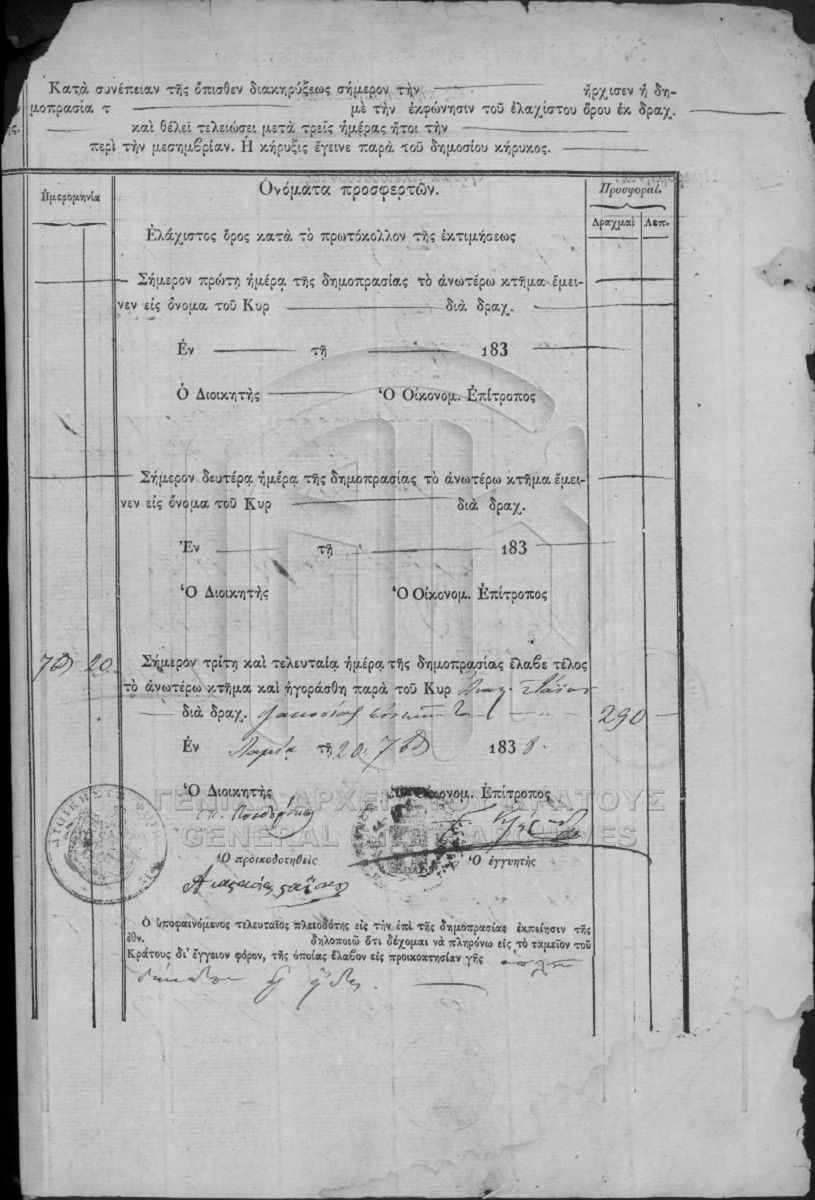 Κατὰ συνέπειαν τῆς ὄπισθεν διακηρύξεως σήμερον τὴν ἤρχισεν ἡ δη-
μοπρασία τ μὲ τὴν ἐκφώνησιν τοῦ ἐλαχίστου ὅρου ἐκ δραχ.
καὶ θέλει τελειώσει μετὰ τρεῖς ἡμέρας ἤτοι τὴν
περὶ τὴν μεσημβρίαν. Ἡ κήρυξις ἔγεινε παρὰ τοῦ δημοσίου κήρυκος.
Ἡμερομηνία Ὀνόματα προσφερτῶν. Προσφοραί.
Δραχμαὶ Λεπ.
Ἐλάχιστος ὅρος κατὰ τὸ πρωτόκολλον τῆς ἐκτιμήσεως
Σήμερον πρώτῃ ἡμέρᾳ τῆς δημοπρασίας τὸ ἀνωτέρω κτῆμα ἔμει-
νεν εἰς ὄνομα τοῦ Κυρ διὰ δραχ.
Ἐν τῇ 183
Ὁ Διοικητὴς Ὁ Οἰκονομ. Ἐπίτροπος
Σήμερον δευτέρᾳ ἡμέρᾳ τῆς δημοπρασίας τὸ ἀνωτέρω κτῆμα ἔμει-
νεν εἰς ὄνομα τοῦ Κυρ διὰ δραχ.
Ἐν τῇ 183
Ὁ Διοικητὴς Ὁ Οἰκονομ. Ἐπίτροπος
7βρ 20 Σήμερον τρίτῃ καὶ τελευταίᾳ ἡμέρᾳ τῆς δημοπρασίας ἔλαβε τέλος
τὸ ἀνωτέρω κτῆμα καὶ ἠγοράσθη παρὰ τοῦ Κυρ
διὰ δραχ. 290
Ἐν Λαμίᾳ τῇ 20 7βρ 1838.
Ὁ Διοικητὴς Ὁ Οἰκονομ. Ἐπίτροπος
ΓΕΝΙΚΑ ΑΡΧΕΙΑ ΤΟΥ ΚΡΑΤΟΥΣ
GENERAL STATE ARCHIVES
ΔΙΟΙΚΗΣΙΣ
Ὁ προικοδοτηθεὶς Ὁ ἐγγυητὴς
Ὁ ὑποφαινόμενος τελευταῖος πλειοδότης εἰς τὴν ἐπὶ τῆς δημοπρασίας ἐκποίησιν τῆς
ἐθν. δηλοποιῶ ὅτι δέχομαι νὰ πληρόνω εἰς τὸ ταμεῖον τοῦ
Κράτους δι' ἔγγειον φόρον, τῆς ὁποίας ἔλαβον εἰς προικοκτησίαν γῆς